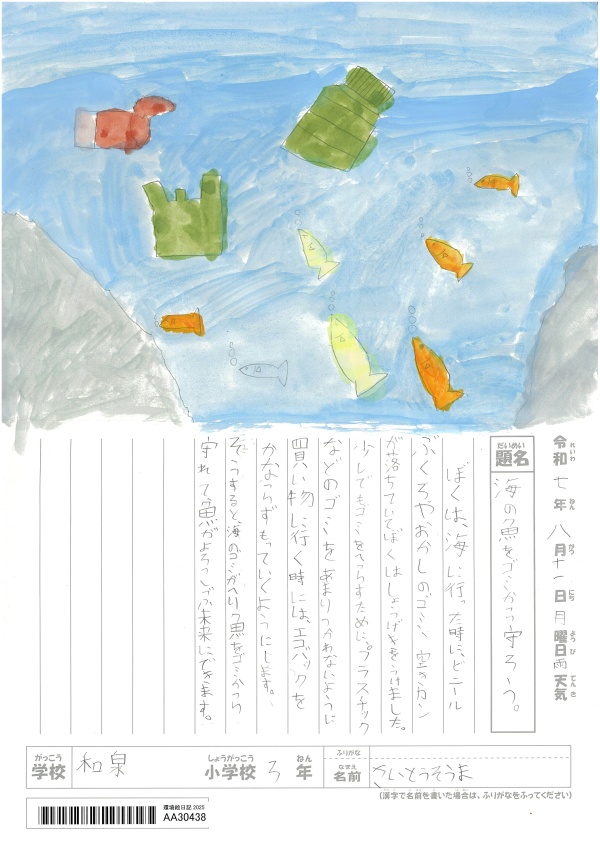 令和七年八月十一日月曜日雨天気
れいわ ねん がつ にち ようび てんき
だいめい
題名
海の魚をゴミから守ろう。
ぼくは、海に行った時に、ビニール
ぶくろやおかしのゴミ、空きカン
が落ちていてぼくはしょうげきをうけました。
少しでもゴミをへらすために、プラスチック
などのゴミをあまりつかわないように
買い物に行く時には、エコバックを
かならずもっていくようにします。
そうすると、海のゴミがへり魚をゴミから
守れて魚がよろこぶ未来にできます。
がっこう しょうがっこう ねん
学校 和泉 小学校 3 年
ふりがな
なまえ
名前 さいとうそうま
(漢字で名前を書いた場合は、ふりがなをふってください)
環境絵日記 2025
AA30438